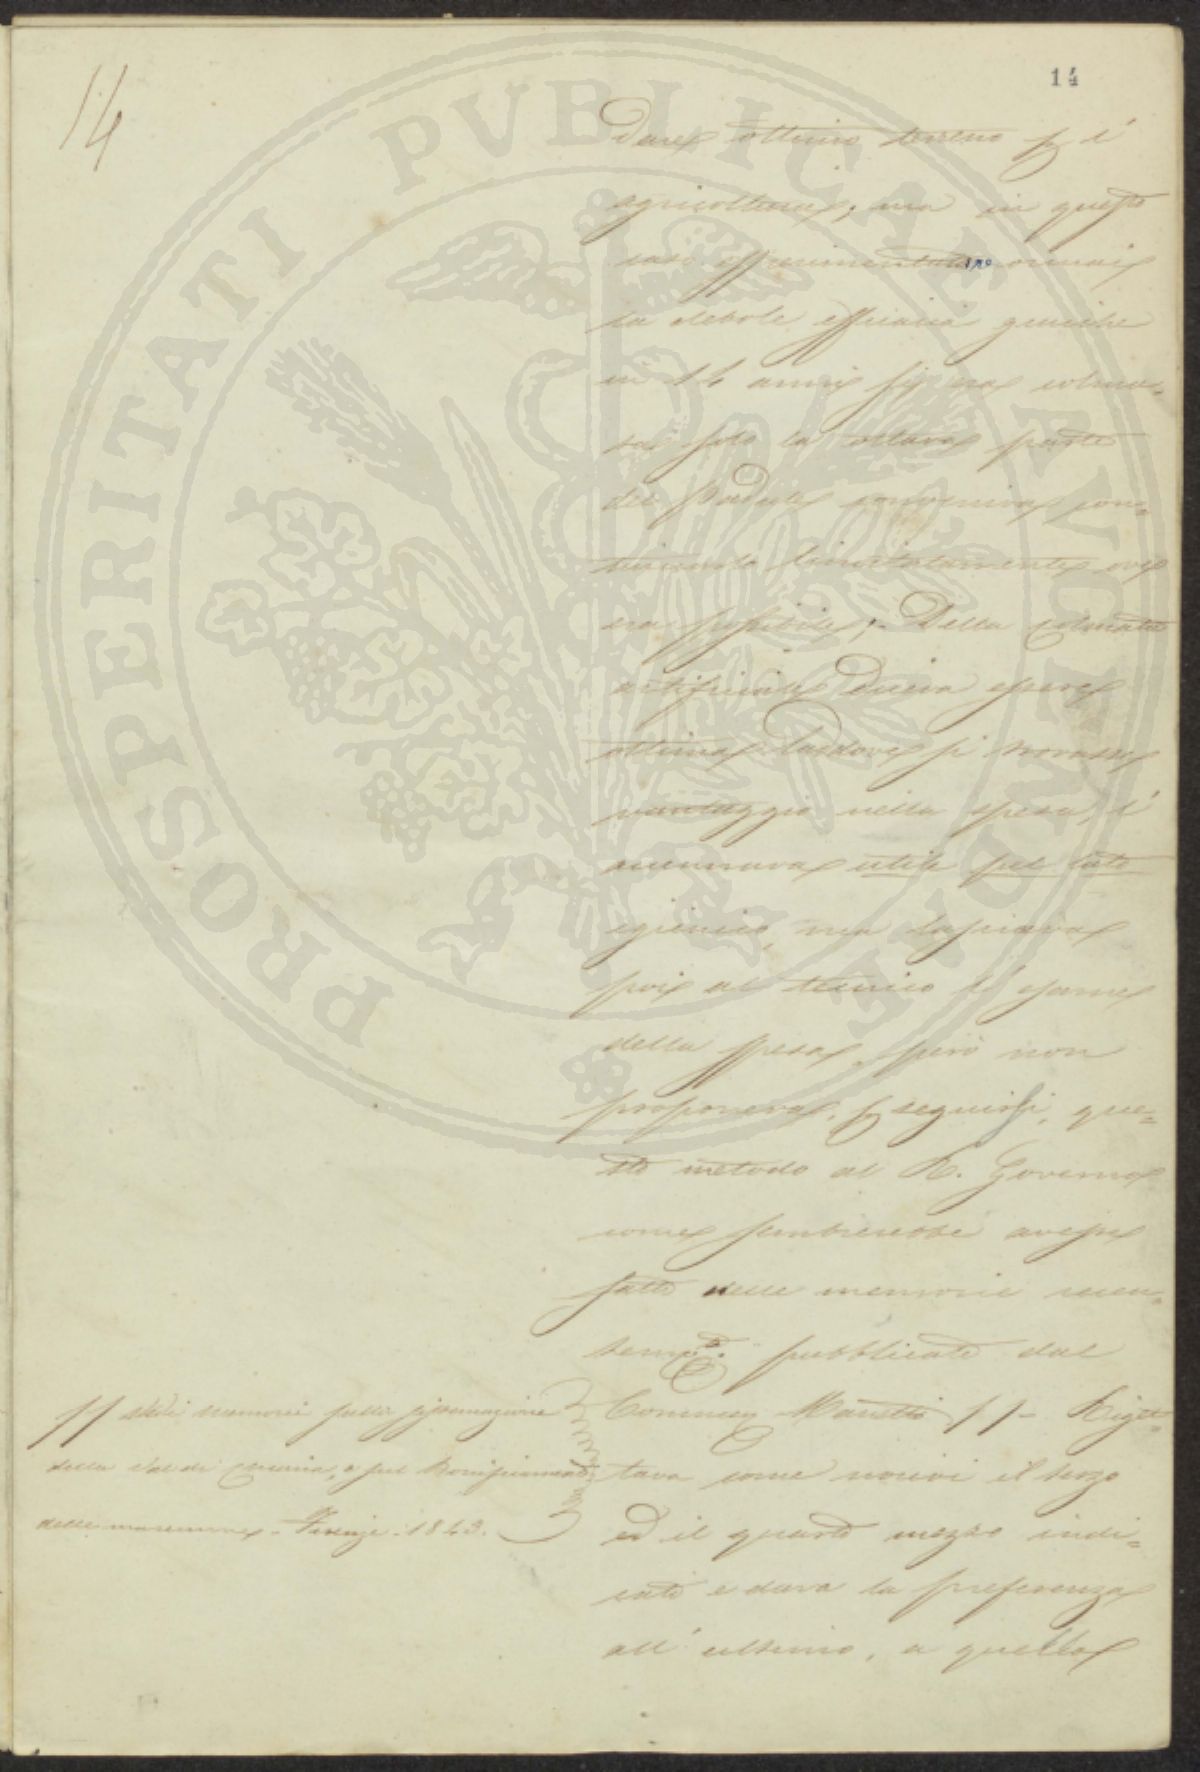 14
14
PROSPERITATI PVBLICAE AVGENDAE
dare ottimo terreno p l'
agricoltura; ma in questo
caso sperimentato ormai
la debole efficacia giacchè
in 14 anni si era colma-
ta solo la ottava parte
del Padule conveniva con-
tinuarla limitatamente ove
era possibile; - Della colmata
artificiale diceva essere
ottima laddove si trovasse
vantaggio nella spesa, l'
accennava utile pel lato
igienico, ma lasciava
poi al tecnico l'esame
della spesa, però non
proponeva, p seguirsi, que=
sto metodo al R. Governo
come sembrerebbe avesse
fatto nelle memorie recen-
temte. pubblicate dal
Commen Manetti // - Riget-
tava come nocivi il terzo
ed il quarto mezzo indi=
cati e dava la preferenza
all' ultimo, a quello
// Vedi memorie sulla
della Val di e pel Bonificamento
delle maremme - Firenze - 1849.